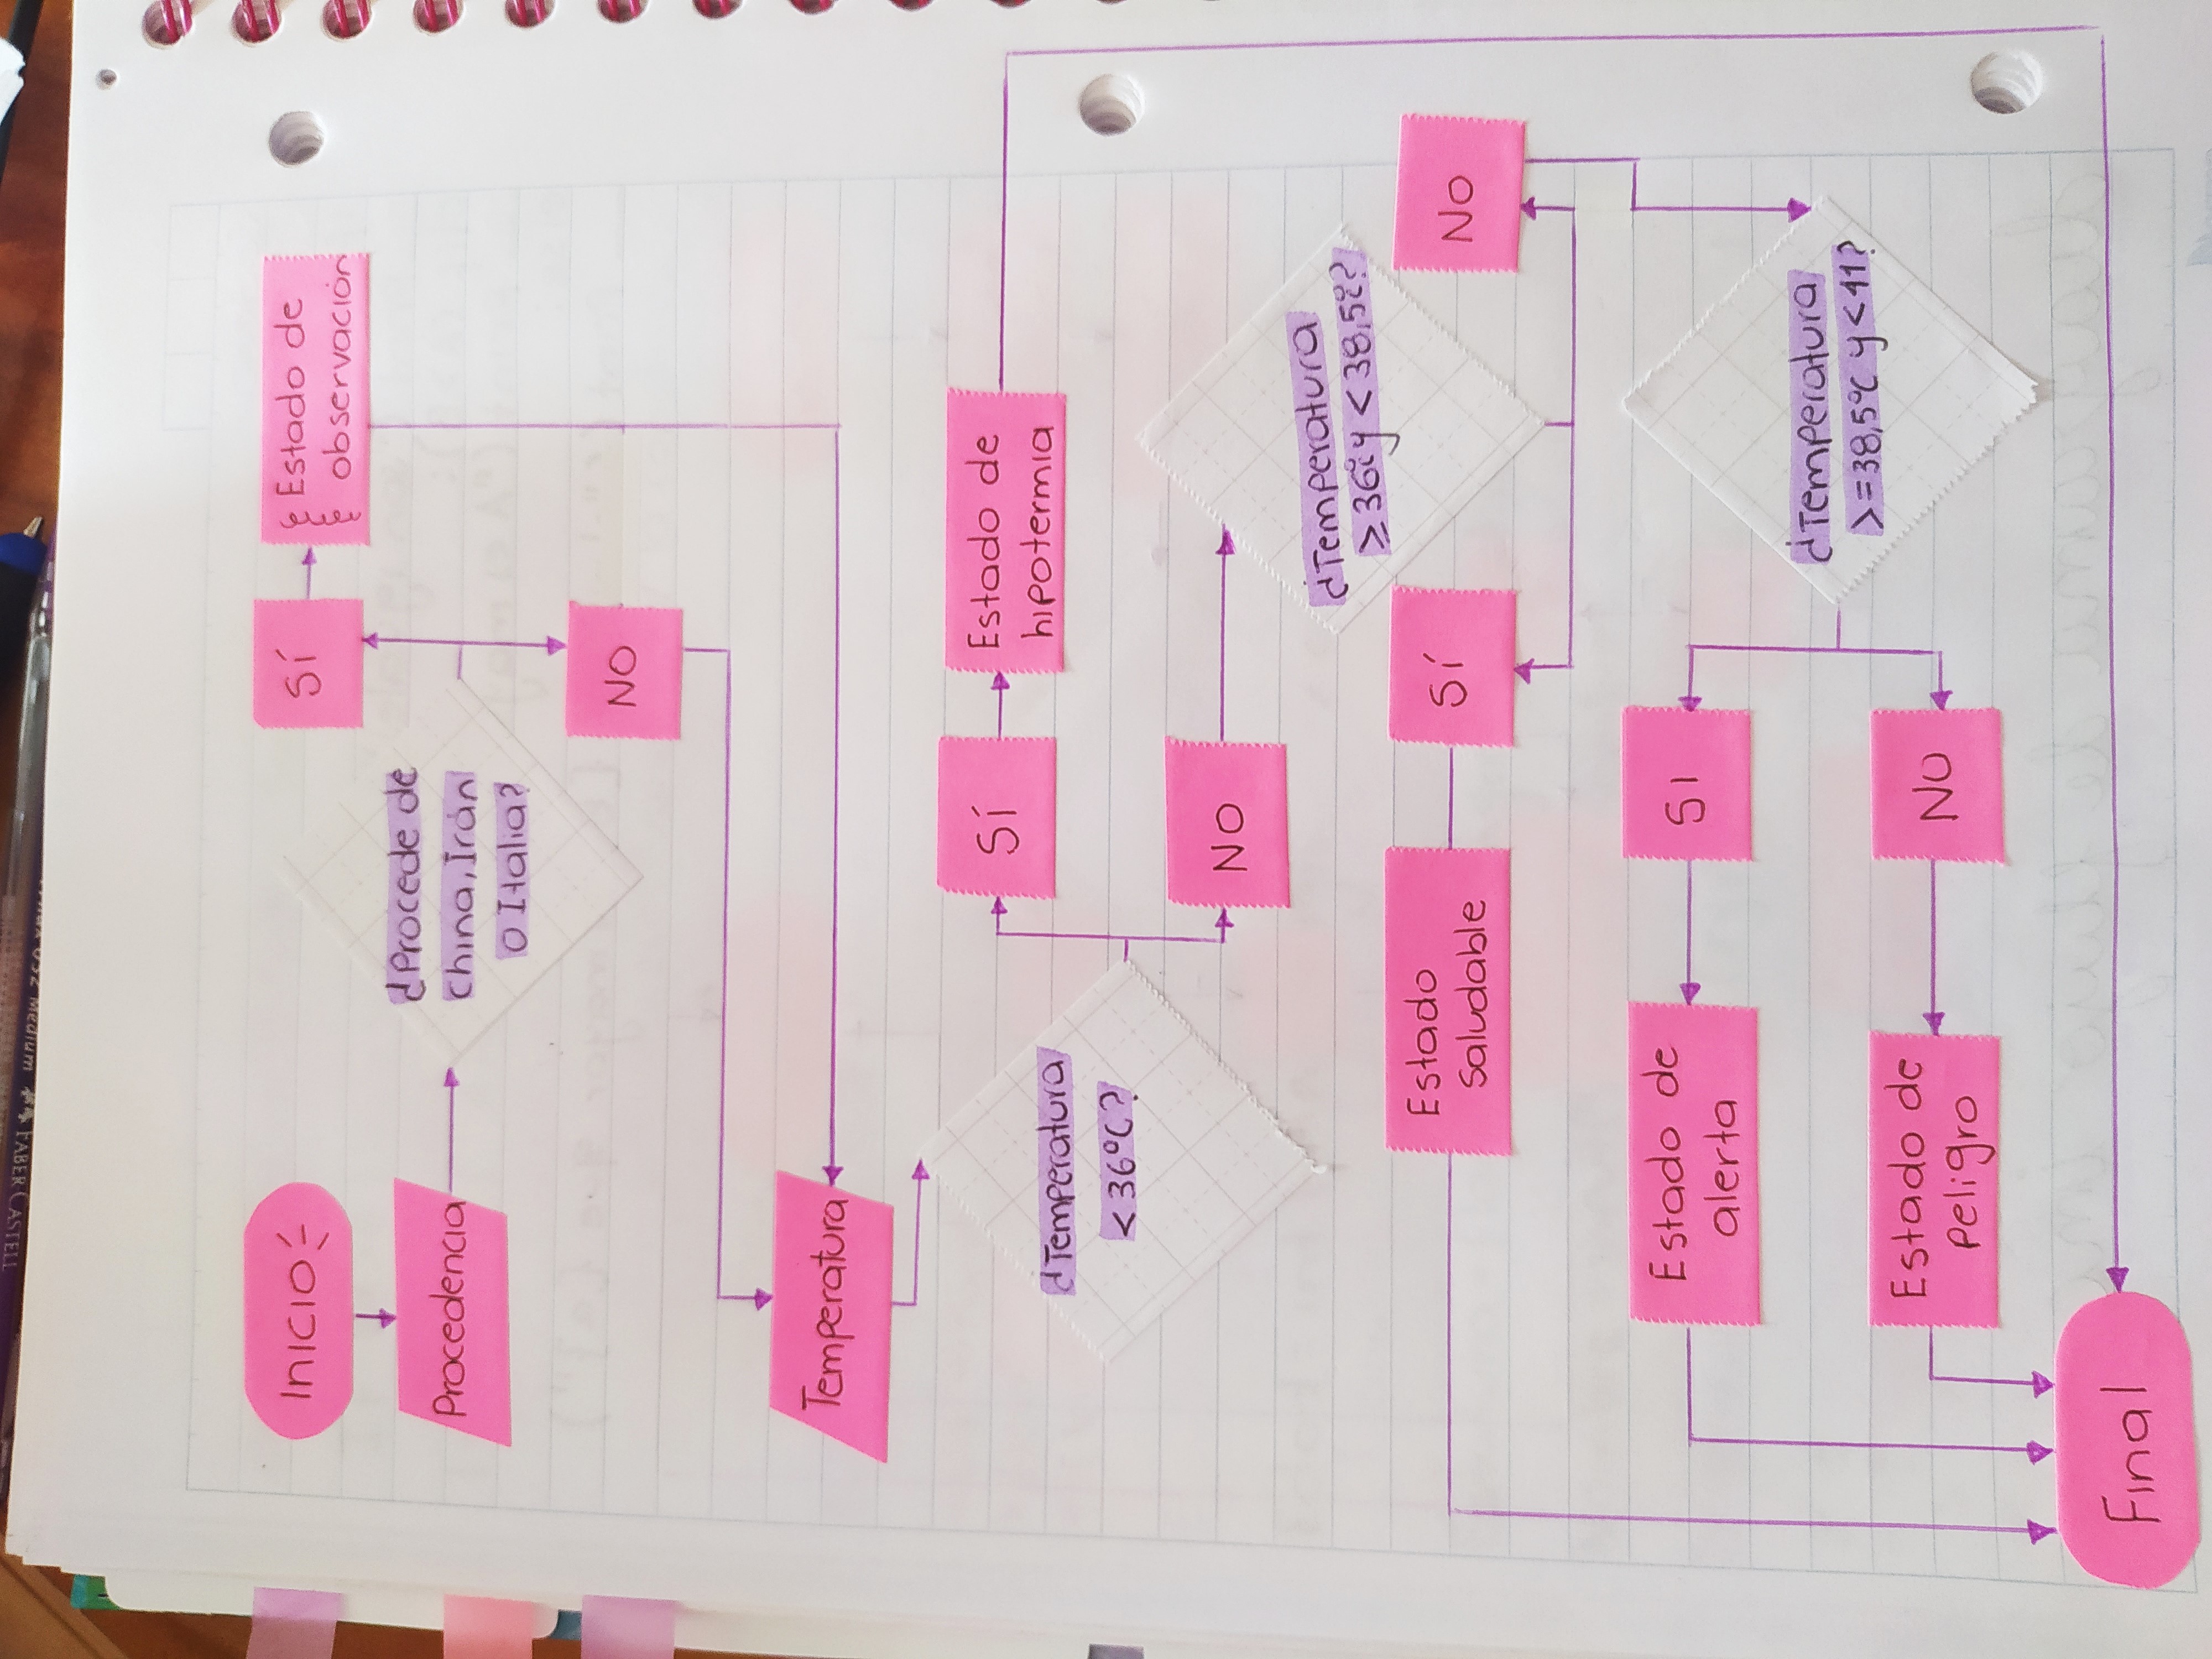 Inicio
Procedencia
¿Procede de
China, Irán
o Italia?
SÍ
Estado de
observación
NO
Temperatura
¿Temperatura
< 36°C?
SÍ
Estado de
hipotermia
NO
¿Temperatura
≥ 36°C y < 38,5°C?
NO
SÍ
Estado
Saludable
¿Temperatura
>= 38,5°C y < 41?
SI
Estado de
alerta
NO
Estado de
Peligro
Final
FABER CASTELL